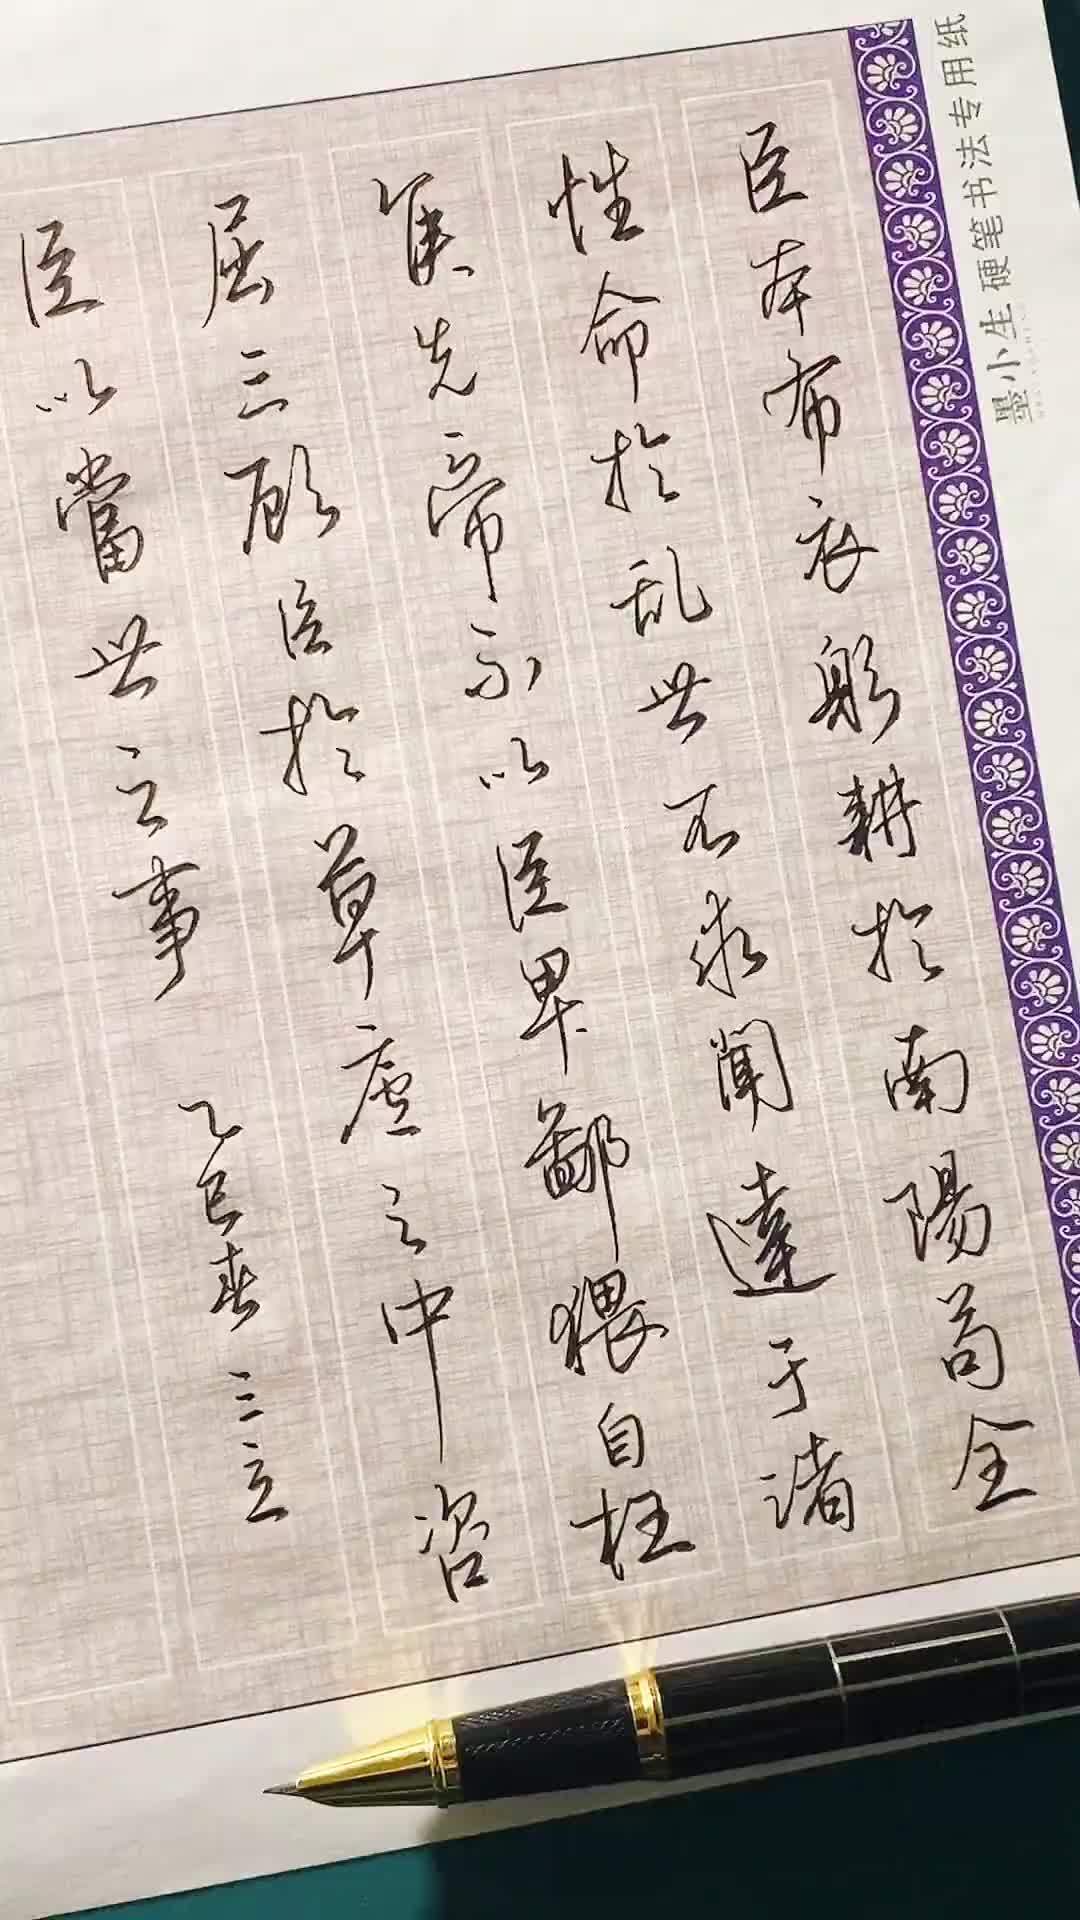 臣本布衣躬耕於南陽苟全
性命於乱世不求聞達于诸
矦先帝不以臣卑鄙猥自枉
屈三顾臣於草庐之中咨
臣以當世之事 乙巳春 三立
墨小生硬笔书法专用纸